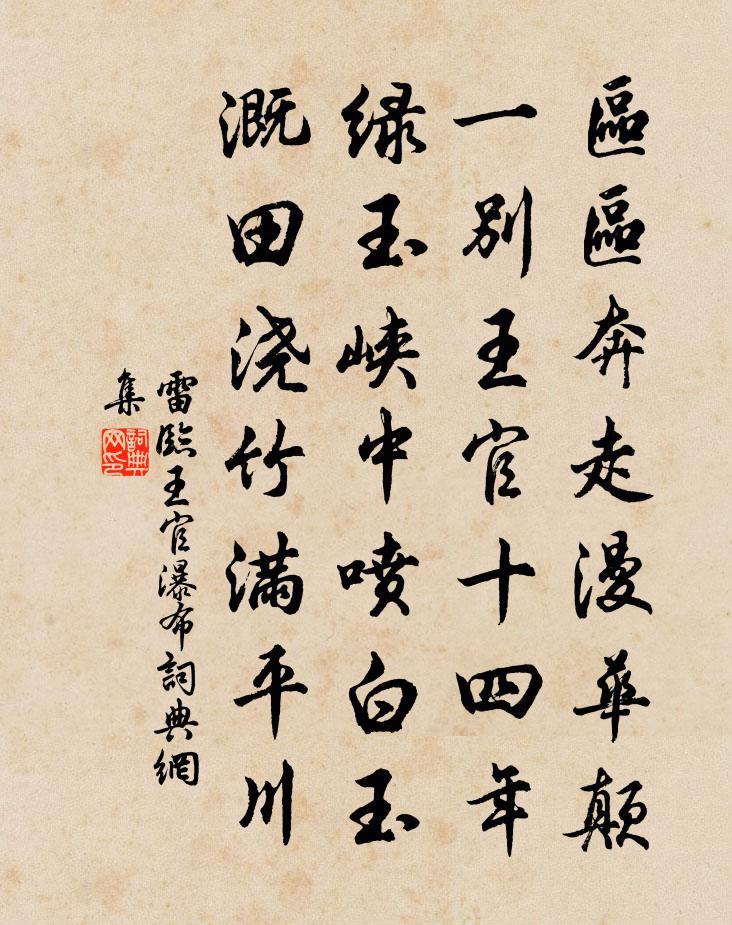 區區奔走漫華顛
一別王官十四年
绿玉峡中喷白玉
溉田浇竹满平川
雷臨王官瀑布詞典網
集
詞典網印